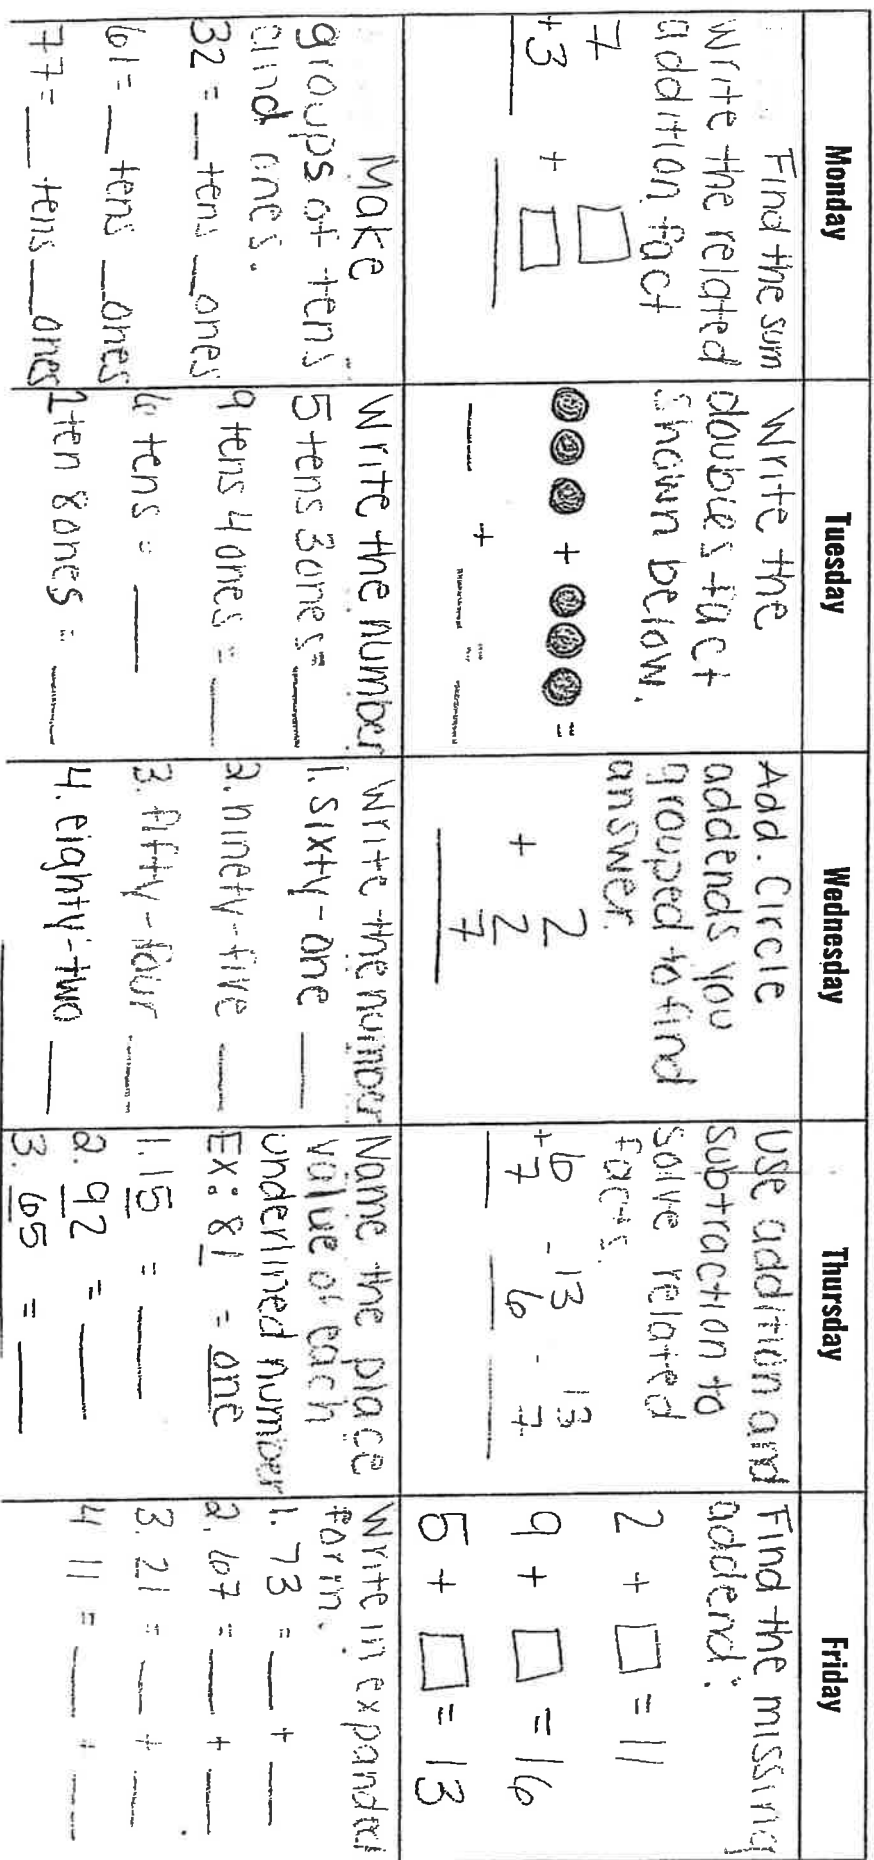 Monday
Tuesday
Wednesday
Thursday
Friday
Find the sum
write the related
addition fact
7
+3
+
Write the
doubles fact
shown below.
+ =
+ =
Add. Circle
addends you
grouped to find
answer.
2
2
+ 7
use addition and
subtraction to
solve related
facts.
6 13 13
+7 - 6 - 7
Find the missing
addend:
2 + = 11
9 + = 16
5 + = 13
Make
groups of tens
and ones.
32 = tens ones
61 = tens ones
77 = tens ones
Write the number
5 tens 3 ones =
9 tens 4 ones =
6 tens =
1 ten 8 ones =
Write the number
1. sixty-one
2. ninety-five
3. fifty-four
4. eighty-two
Name the place
value of each
underlined number
Ex: 81 = one
1. 15 =
2. 92 =
3. 65 =
Write in expanded
form.
1. 73 = +
2. 67 = +
3. 21 = +
4 11 = +